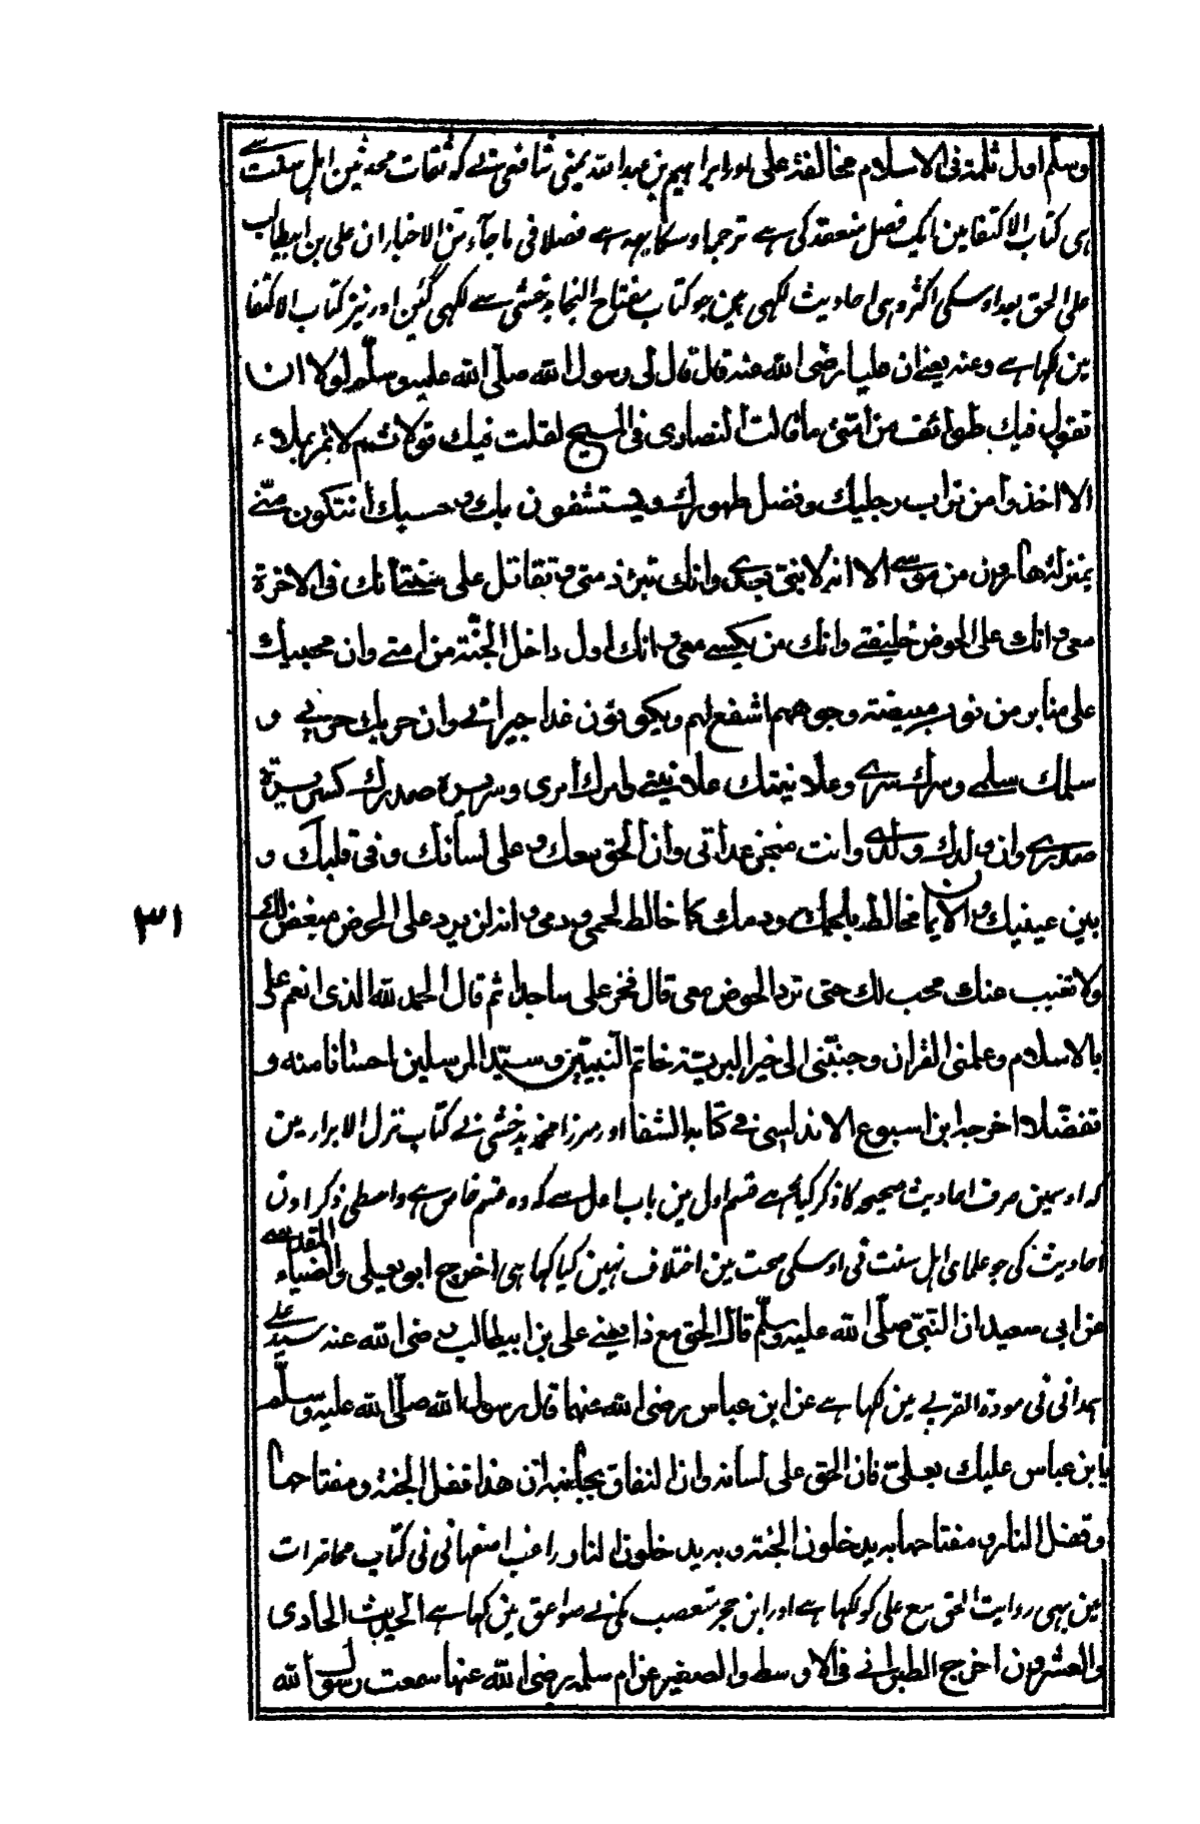 وسلم اول ثلمة فی الاسلام مخالفة علی اور ابراہیم بن عبد اللہ یمنی شافعی نے کہ ثقات محدثین اہل سنت سے
ہی کتاب الاکتفا مین ایک فصل منعقد کی ہے ترجمہ اوسکا یہہ ہے فصلا فی ما جآء من الاخبار ان علی بن ابیطالب
علی الحق بعد اوسکی اکثر وہی احادیث لکہی ہین جو کتاب مفتاح النجا بدخشی سے لکہی گئین اور نیز کتاب الاکتفا
مین لکہا ہے وعنہ یعنے ان علیا رضی اللہ عنہ قال قال لی رسول اللہ صلی اللہ علیہ وسلم لولا ان
تقول فیک طوائف من امتی ما قالت النصاری فی المسیح لقلت فیک قولا ثم لا تمر بملاء
الا اخذوا من تراب رجلیک وفضل طهورک ویستشفون بک وحسبک ان تکون منّے
بمنزلة هارون من موسے الا انه لا نبی بعدی وانک تبرئ ذمتی وتقاتل علی سنتے انک فی الاخرة
معی وانک علی الحوض خلیفتے وانک من یکسے معی وانک اول داخل الجنّة من امتے وان محبیک
علی منابر من نور مبیضة وجوههم اشفع لهم ویکونون غدا جیرانے وان حربک حربے و
سلمک سلمے وسرک سرے وعلانیتک علانیتے وامرک امری وسریرة صدرک کسریرة
صدرے وان ولدک ولدے وانت منجز عداتی وان الحق معک وعلی لسانک وفی قلبک و
بین عینیک والایمان مخالط بلحمک ودمک کما خالط لحمی ودمی وانه لن یرد علی الحوض مبغض لک
ولا تغیب عنک محب لک حتی ترد الحوض معی قال فخر علی ساجدا ثم قال الحمد للہ الذی انعم علی
بالاسلام وعلمنی القران وحببنی الی خیر البریّة خاتم النبیّین وسیّد المرسلین احسانا منه و
تفضّلا اخرجه ابن اسبوع الاندلسی فی کتابه الشفا اور مرزا محمد بدخشی نے کتاب نزل الابرار مین
کہ اوسمین صرف احادیث صحیحہ کا ذکر کیا ہے قسم اول مین باب اول سے کہ وہ قسم خاص ہے واسطی ذکر اون
احادیث کی جو علمای اہل سنت نی اوسکی صحت مین اختلاف نہین کیا کہا ہی اخرج ابو یعلی والضیاء المقدسے
عن ابی سعید ان النبی صلّی اللہ علیه وسلّم قال الحق مع ذا یعنے علی بن ابیطالب رضی اللہ عنه سید علی
ہمدانی نی مودة القربے مین لکہا ہے عن ابن عباس رضی اللہ عنهما قال رسول اللہ صلّی اللہ علیه وسلّم
یا بن عباس علیک بعلیّ فان الحق علی لسانه وان النفاق بجانبه ان هذا قفل الجنة ومفتاحها
وقفل النار ومفتاحها به یدخلون الجنّة وبه یدخلون النار راغب اصفہانی نی کتاب محاضرات
مین بہی روایت الحق مع علی کو لکہا ہے اور ابن حجر متعصب مکی نے صواعق مین کہا ہے الحدیث الحادی
والعشرون اخرج الطبرانے فی الاوسط والصغیر عن ام سلمه رضی اللہ عنها سمعت رسول اللہ
۳۱